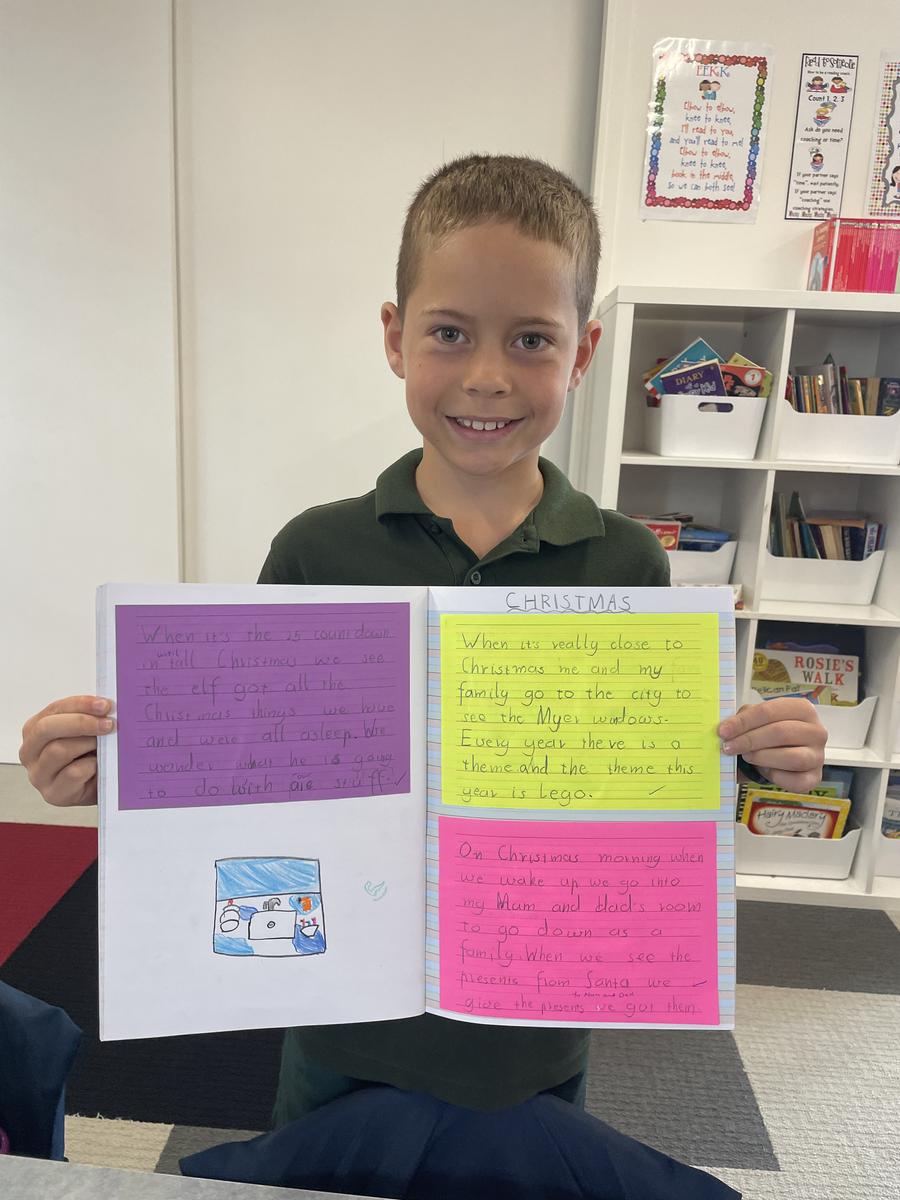 EEKK
Elbow to elbow,
knee to knee,
I'll read to you,
and you'll read to me!
Elbow to elbow,
knee to knee,
book in the middle,
so we can both see!
Read to Someone
How to be a reading coach
Count 1, 2, 3
Ask do you need
coaching or time?
If your partner says
"time", wait patiently.
If your partner says
"coaching" use
coaching strategies.
DIARY
1
ROSIE'S
WALK
Pelican Pat
Hairy Maclary
When it's the 25 countdown
until
in tall Christmas we see
the elf got all the
Christmas things we have
and were all asleep. We
wonder what he is going
our
to do with are stuff.
CHRISTMAS
When it's really close to
Christmas me and my fam
family go to the city to
see the Myer windows.
Every year there is a
theme and the theme this
year is Lego.
On Christmas morning when
we wake up we go into
my Mum and dad's room
to go down as a
family. When we see the
presents from Santa we
to Mum and Dad
give the presents we got them